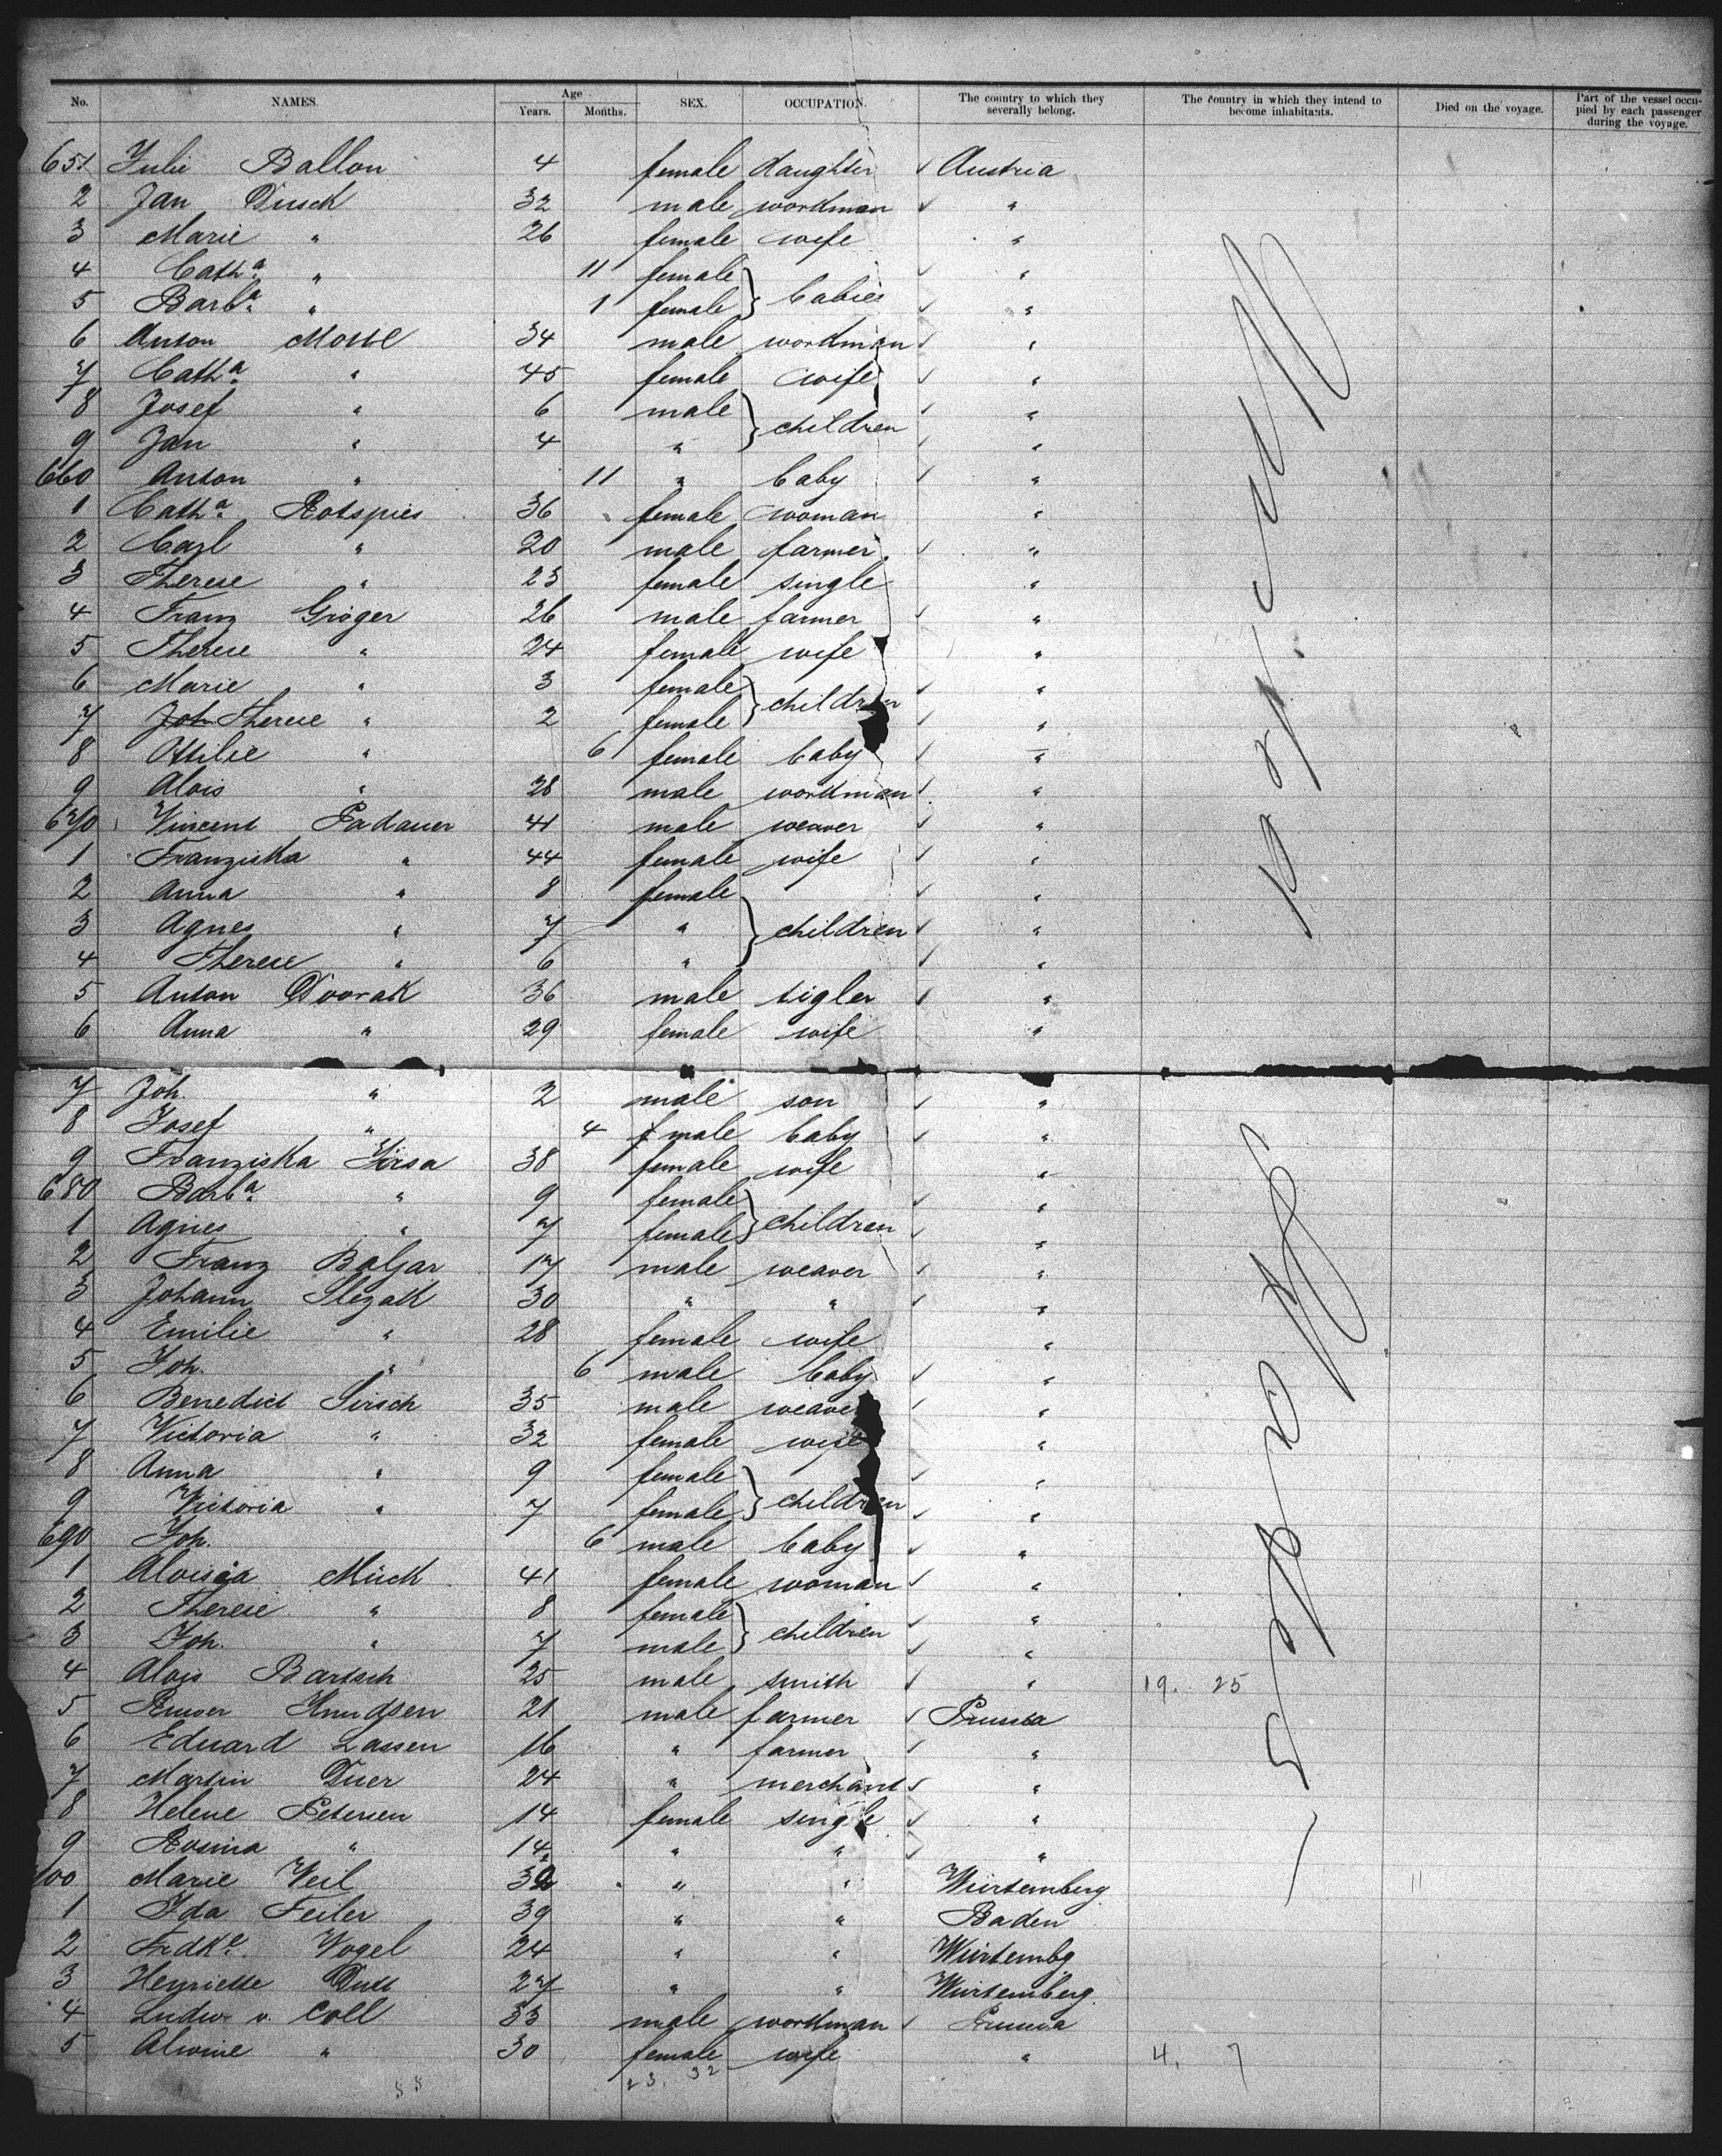 No. NAMES. Age Years. Months. SEX. OCCUPATION. The country to which they severally belong. The country in which they intend to become inhabitants. Died on the voyage. Part of the vessel occupied by each passenger during the voyage.
651 Julie Ballon 4 female daughter Austria
2 Jan Dusek 32 male workman "
3 Marie " 26 female wife "
4 Cath.a " 11 female "
5 Barb.a " 1 female } babies "
6 Anton 34 male workman "
7 Cath.a " 45 female wife "
8 Josef " 6 male "
9 Jan " 4 " } children "
660 Anton " 11 " baby "
1 Cath.a Rotspies 36 female woman "
2 Carl " 20 male farmer "
3 Therese " 23 female single "
4 Franz Gröger 26 male farmer "
5 Therese " 24 female wife "
6 Marie " 3 female "
7 Joh. Therese " 2 female } children "
8 Ottilie " 6 female baby "
9 Alois " 28 male workman "
670 Vincent Padauer 41 male weaver "
1 Franziska " 44 female wife "
2 Anna " 8 female "
3 Agnes " 7 " } children "
4 Therese " 6 " "
5 Anton Dvorak 36 male tigler "
6 Anna " 29 female wife "
7 Joh. " 2 male son "
8 Josef " 4 male baby "
9 Franziska Jirsa 38 female wife "
680 Barb.a " 9 female "
1 Agnes " 7 female } children "
2 Franz Baljar 17 male weaver "
3 Johann Slezak 30 " " "
4 Emilie " 28 female wife "
5 Joh. " 6 male baby "
6 Benedict Sirsch 35 male weaver "
7 Victoria " 32 female wife "
8 Anna " 9 female "
9 Victoria " 7 female } children "
690 Joh. 6 male baby "
1 Aloisia Mück 41 female woman "
2 Therese " 8 female "
3 Joh. " 7 male } children "
4 Alois Bartsch 25 male smith " 19. 25
5 Knudsen 21 male farmer Prussia
6 Eduard Lassen 16 " farmer "
7 Martin Duer 24 " merchant "
8 Helene Petersen 14 female single "
9 Rosina " 14 " " "
700 Marie Veil 32 " " Würtemberg
1 Ida Feiler 39 " " Baden
2 Fredk.e Vogel 24 " " Würtembg
3 Henriette 27 " " Würtemberg.
4 Ludw. v. Coll 33 male workman Prussia
5 Alwine " 30 female wife " 4. 7
23. 32